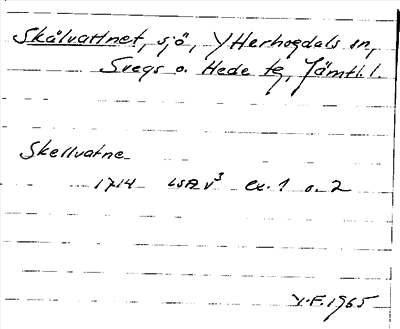 Skålvattnet, sjö, YHerhogdals sn,
Svegs o. Hede tg, Jämtl. l.
Skellvatne
1714 LSA V³ ex. 1 o. 2
V.F. 1965